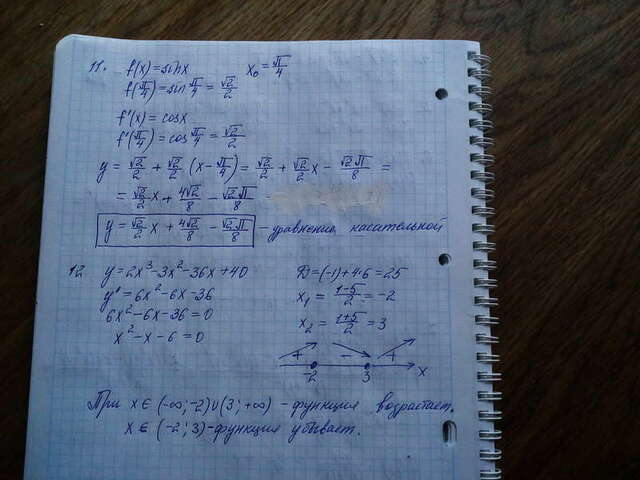 11. f(x)=sinx x₀=π/4
f(π/4)=sin π/4 = √2/2
f'(x)=cosx
f'(π/4)=cos π/4 = √2/2
y= √2/2 + √2/2 (x-π/4)= √2/2 + √2/2 x - √2π/8 =
= √2/2 x + 4√2/8 - √2π/8
y= √2/2 x + 4√2/8 - √2π/8 - уравнение касательной
12 y=2x³-3x²-36x+40
y'=6x²-6x-36
6x²-6x-36=0
x²-x-6=0
D=(-1)+4·6=25
x₁ = 1-5/2 = -2
x₂ = 1+5/2 = 3
+ - +
-2 3 x
При x∈(-∞;-2)∪(3;+∞) - функция возрастает.
x∈(-2;3)-функция убывает.